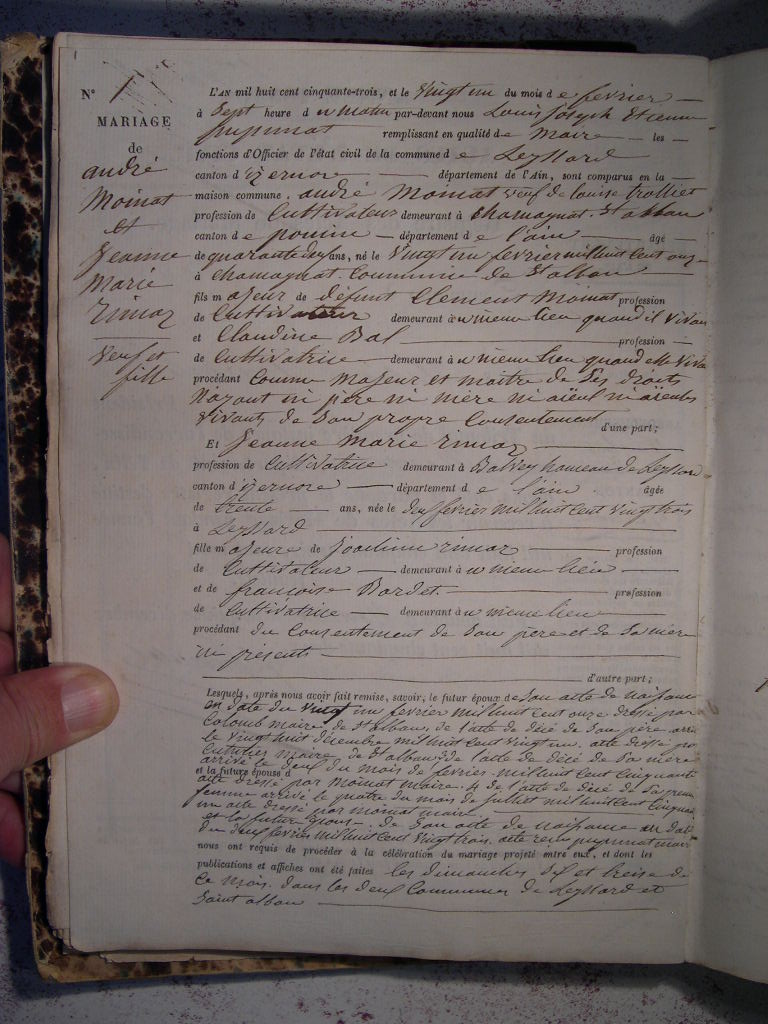 N° 1
MARIAGE
de
andré
Moinat
et
Jeanne
Marie
rimoz
veuf et
fille
L'AN mil huit cent cinquante-trois, et le vingt un du mois d e fevrier
à Sept heure d u matin par-devant nous Louis Joseph Etienne
remplissant en qualité de Maire les
fonctions d'Officier de l'état civil de la commune d e Leyssard
canton d'izernore département de l'Ain, sont comparus en la
maison commune. andré Moinat veuf de louise trolliet
profession de Cultivateur demeurant à chamagnat. St alban
canton d e poncin département d e l'ain âgé
de quarante deux ans, né le vingt un fevrier mil huit cent onze
a chamagnat Commune de St alban
fils majeur de défunt Clement Moinat profession
de Cultivateur demeurant au meme lieu quand il vivan
et Claudine Bal profession
de Cultivatrice demeurant au meme lieu quand elle viva
procédant Comme Majeur et maitre de Ses droits
Nayant ni père ni mère ni aieul ni aieules
vivants de Son propre Consentement
d'une part;
Et Jeanne Marie rimoz
profession de Cultivatrice demeurant à Balvay hameau de Leyssard
canton d'izernore département d e l'ain âgée
de trente ans, née le deux fevrier mil huit cent vingt trois
à Leyssard
fille majeure de Joachim rimoz profession
de Cultivateur demeurant au meme lieu
et de françoise Bordet profession
de Cultivatrice demeurant au meme lieu
procédant du Consentement de Son père et de Sa mère
ici présents
d'autre part;
Lesquels, après nous avoir fait remise, savoir: le futur époux de Son acte de naissance
en date du vingt un fevrier mil huit cent onze dressé par
Colomb maire de St alban, de l'acte de décé de Son père arrivé
le vingt huit décembre mil huit cent vingt un. acte dressé par
maire de St alban, de l'acte de décé de Sa mère
arrivé le deux du mois de fevrier mil huit cent cinquante
et la future épouse d
acte dressé par Moinat maire. & de l'acte de décé de Sa première
femme arrivé le quatre du mois de juillet mil huit cent cinquante
un acte dressé par moinat maire.
et la future épouse de Son acte de naissance en date
du deux fevrier mil huit cent vingt trois. acte maire
nous ont requis de procéder à la célébration du mariage projeté entre eux, et dont les
publications et affiches ont été faites les dimanches six et treise de
Ce mois. dans les deux Communes de Leyssard et
Saint alban